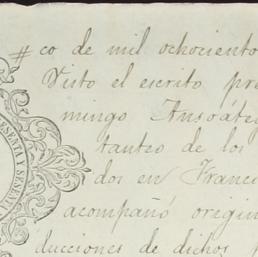 #co de mil ochociento
Visto el escrito pre
mingo Ansoáte
tanteo de los
dos en Franc
acompañó origin
ducciones de dichos
SESENTA Y SESENTA